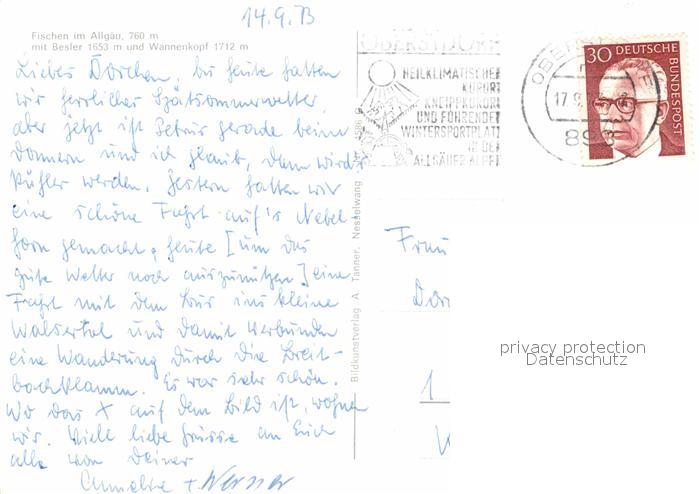 14.9.73
Fischen im Allgäu, 760 m
mit Besler 1653 m und Wannenkopf 1712 m
Liebes Dorchen, bis heute hatten
wir herrliches Spätsommerwetter,
aber jetzt ist Petrus gerade beim
Donnern und ich glaub, dann wird's
kühler werden. Gestern hatten wir
eine schöne Fahrt auf's Nebel
horn gemacht, heute [um das
gute Wetter noch auszunützen] eine
Fahrt mit dem Bus ins kleine
Walsertal und damit verbunden
eine Wanderung durch die Breit-
bachklamm. Es war sehr schön.
Wo das X auf dem Bild ist, wohnen
wir. Viele liebe Grüsse an Euch
alle von Deiner
Annelise + Werner
Bildkunstverlag A. Tanner, Nesselwang
OBERSTDORF
HEILKLIMATISCHER
KURORT
KNEIPPKURORT
UND FÜHRENDER
WINTERSPORTPLATZ
IN DEN
ALLGÄUER ALPEN
17.9.
30 DEUTSCHE
BUNDESPOST
Frau
Dor
1
privacy protection
Datenschutz